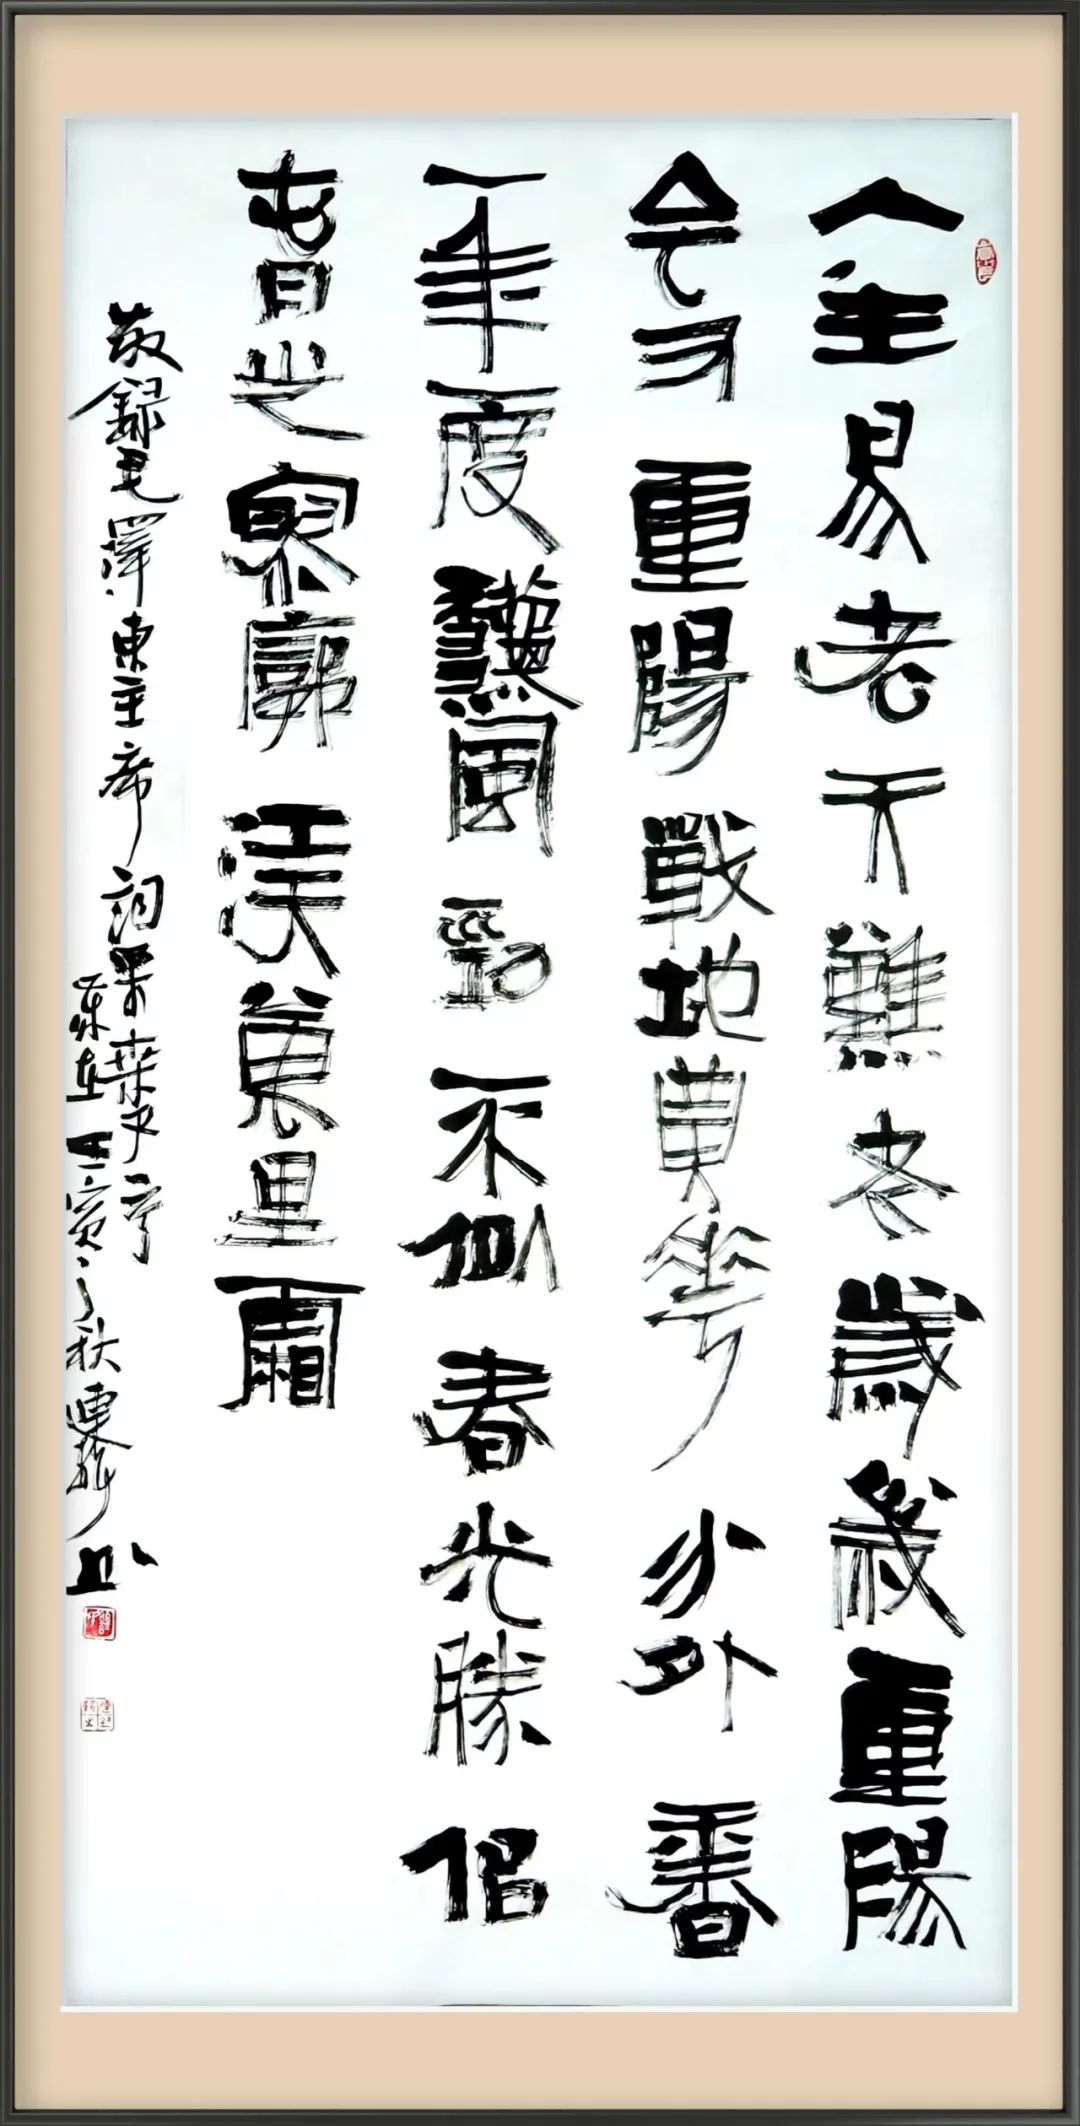 人生易老天難老歲歲重陽
今又重陽戰地黄花分外香
一年一度龝風勁不似春光勝佀
旾光寥廓江天萬里霜
敬錄毛澤東主席詞采桑子
歲在壬寅之秋連